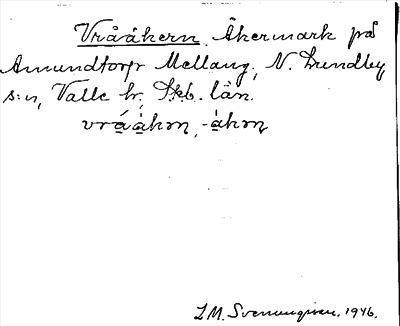 Vrååkern. Åkermark på
Amundtorp Mellang, N. Lundby
s:n, Valle hr, Skb. län.
vrååkɷn, -åkɷn
L.M. Svenungsson. 1946.